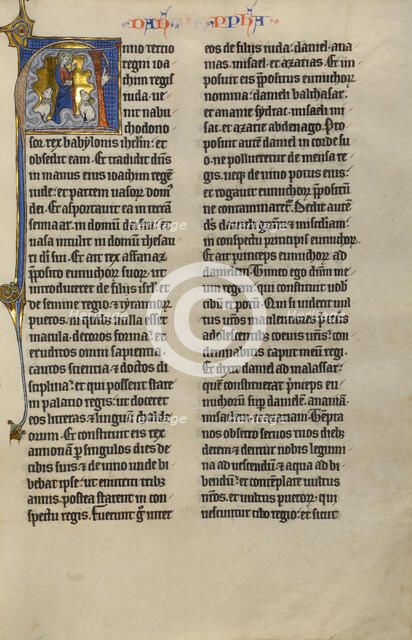 DANI PPHA
Anno tercio
regni ioa
chim regis
iuda: ue
nit nabu
chodono
sor rex babylonis ihrlm: et
obsedit eam. Et tradidit dñs
in manus eius ioachim regē
iude: et partem uasoꝝ domꝰ
dei. Et asportauit ea in terrā
sennaar in domū dei sui: et
uasa intulit in domū thesau
ri dei sui. Et ait rex asfanaz
pposito eunuchoꝝ suoꝝ ut in
troduceret de filijs isrl: et
de semine regio et tyrannoꝝ
pueros. in quibꝫ nulla esset
macula. decoros forma: et
eruditos omni sapientia.
cautos scientia: et doctos di
sciplina: et qui possent stare
in palatio regis: ut doceret
eos litteras et linguā chalde
orum. Et constituit eis rex
annonam p singulos dies de
cibis suis: et de uino unde bi
bebat ipse: ut enutriti tribꝫ
annis. postea starent in con
spectu regis. Fuerunt g inter
eos de filijs iuda: daniel. ana
nias. misael. et azarias. Et im
posuit eis ppositus eunuchoꝝ
nomina: danieli balthasar.
et ananie sydrac. misaeli mi
sac. et azarie abdenago. Pro
posuit autē daniel in corde su
o: ne pollueretur de mensa re
gis. neqꝫ de uino potus eius:
et rogauit eunuchoꝝ ppositū:
ne contaminaret. Dedit autē
dñs danieli gratiā et miscdiam:
in conspectu principis eunuchoꝝ.
Et ait princeps eunuchoꝝ ad
danielem. Timeo ego dnm me
um regem. qui constituit uob
cibū et potū. Qui si uiderit uul
tus uros macilentiores p ceteis
adolescentibꝫ coeuis uris: con
dempnabitis caput meū regi.
Et dixit daniel ad malassar.
quē constituerat princeps eu
nuchoꝝ sup danielē. ananiā.
misaelem. et azariam. Tempta
nos obsecro seruos tuos diebꝫ
decem: et dentur nobis legumi
na ad uescendū: et aqua ad bi
bendū: et contemplare uultus
nros. et uultus pueroꝝ. qui
uescuntur cibo regio: et sicut
heritage
Images